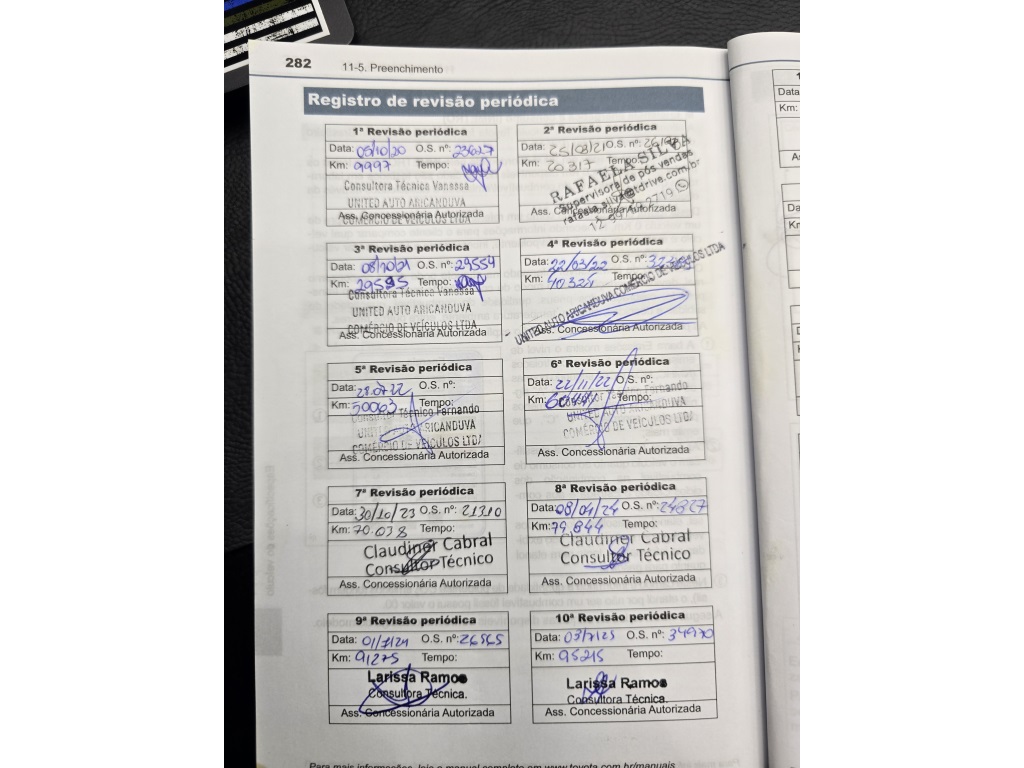 282 11-5. Preenchimento
Registro de revisão periódica
1ª Revisão periódica
Data: 05/10/20 O.S. nº: 23627
Km: 9997 Tempo:
Consultora Técnica Vanessa
UNITED AUTO ARICANDUVA
COMÉRCIO DE VEÍCULOS LTDA
Ass. Concessionária Autorizada
2ª Revisão periódica
Data: 25/03/21 O.S. nº:
Km: 20317 Tempo:
RAFAELA SILVA
Supervisora de pós vendas
Ass. Concessionária Autorizada
3ª Revisão periódica
Data: 08/10/21 O.S. nº: 29554
Km: 29595 Tempo:
Consultora Técnica Vanessa
UNITED AUTO ARICANDUVA
COMÉRCIO DE VEÍCULOS LTDA
Ass. Concessionária Autorizada
4ª Revisão periódica
Data: 22/03/22 O.S. nº:
Km: 40325 Tempo:
UNITED AUTO ARICANDUVA COMÉRCIO DE VEÍCULOS LTDA
Ass. Concessionária Autorizada
5ª Revisão periódica
Data: 28.07.22 O.S. nº:
Km: 50063 Tempo:
Consultor Técnico Fernando
UNITED AUTO ARICANDUVA
COMÉRCIO DE VEÍCULOS LTDA
Ass. Concessionária Autorizada
6ª Revisão periódica
Data: 22/11/22 O.S. nº:
Km: Tempo:
Consultor Técnico Fernando
UNITED AUTO ARICANDUVA
COMÉRCIO DE VEÍCULOS LTDA
Ass. Concessionária Autorizada
7ª Revisão periódica
Data: 30/10/23 O.S. nº: 21310
Km: 70.038 Tempo:
Claudiner Cabral
Consultor Técnico
Ass. Concessionária Autorizada
8ª Revisão periódica
Data: 08/04/24 O.S. nº: 24327
Km: 79.844 Tempo:
Claudiner Cabral
Consultor Técnico
Ass. Concessionária Autorizada
9ª Revisão periódica
Data: O.S. nº: 26565
Km: 91275 Tempo:
Larissa Ramos
Consultora Técnica.
Ass. Concessionária Autorizada
10ª Revisão periódica
Data: 03/7/25 O.S. nº: 34970
Km: 95215 Tempo:
Larissa Ramos
Consultora Técnica.
Ass. Concessionária Autorizada
Para mais informações, leia o manual completo em www.toyota.com.br/manuais
Data:
Km: